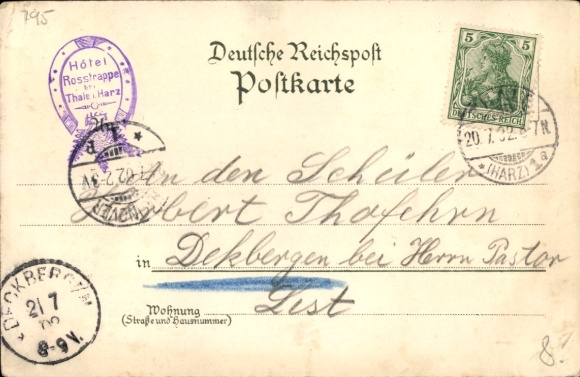 795
Hôtel
Rosstrappe
bei
Thale i. Harz
Deutsche Reichspost
Postkarte
5 5
DEUTSCHES REICH
20.7.02. 7N
*(HARZ) 1a
HANNOVER
An den Schüler
Herbert Thofehrn
in Dekbergen bei Herrn Pastor
List
Wohnung
(Straße und Hausnummer)
DECKBERGEN
21 7
02
8-9 V.